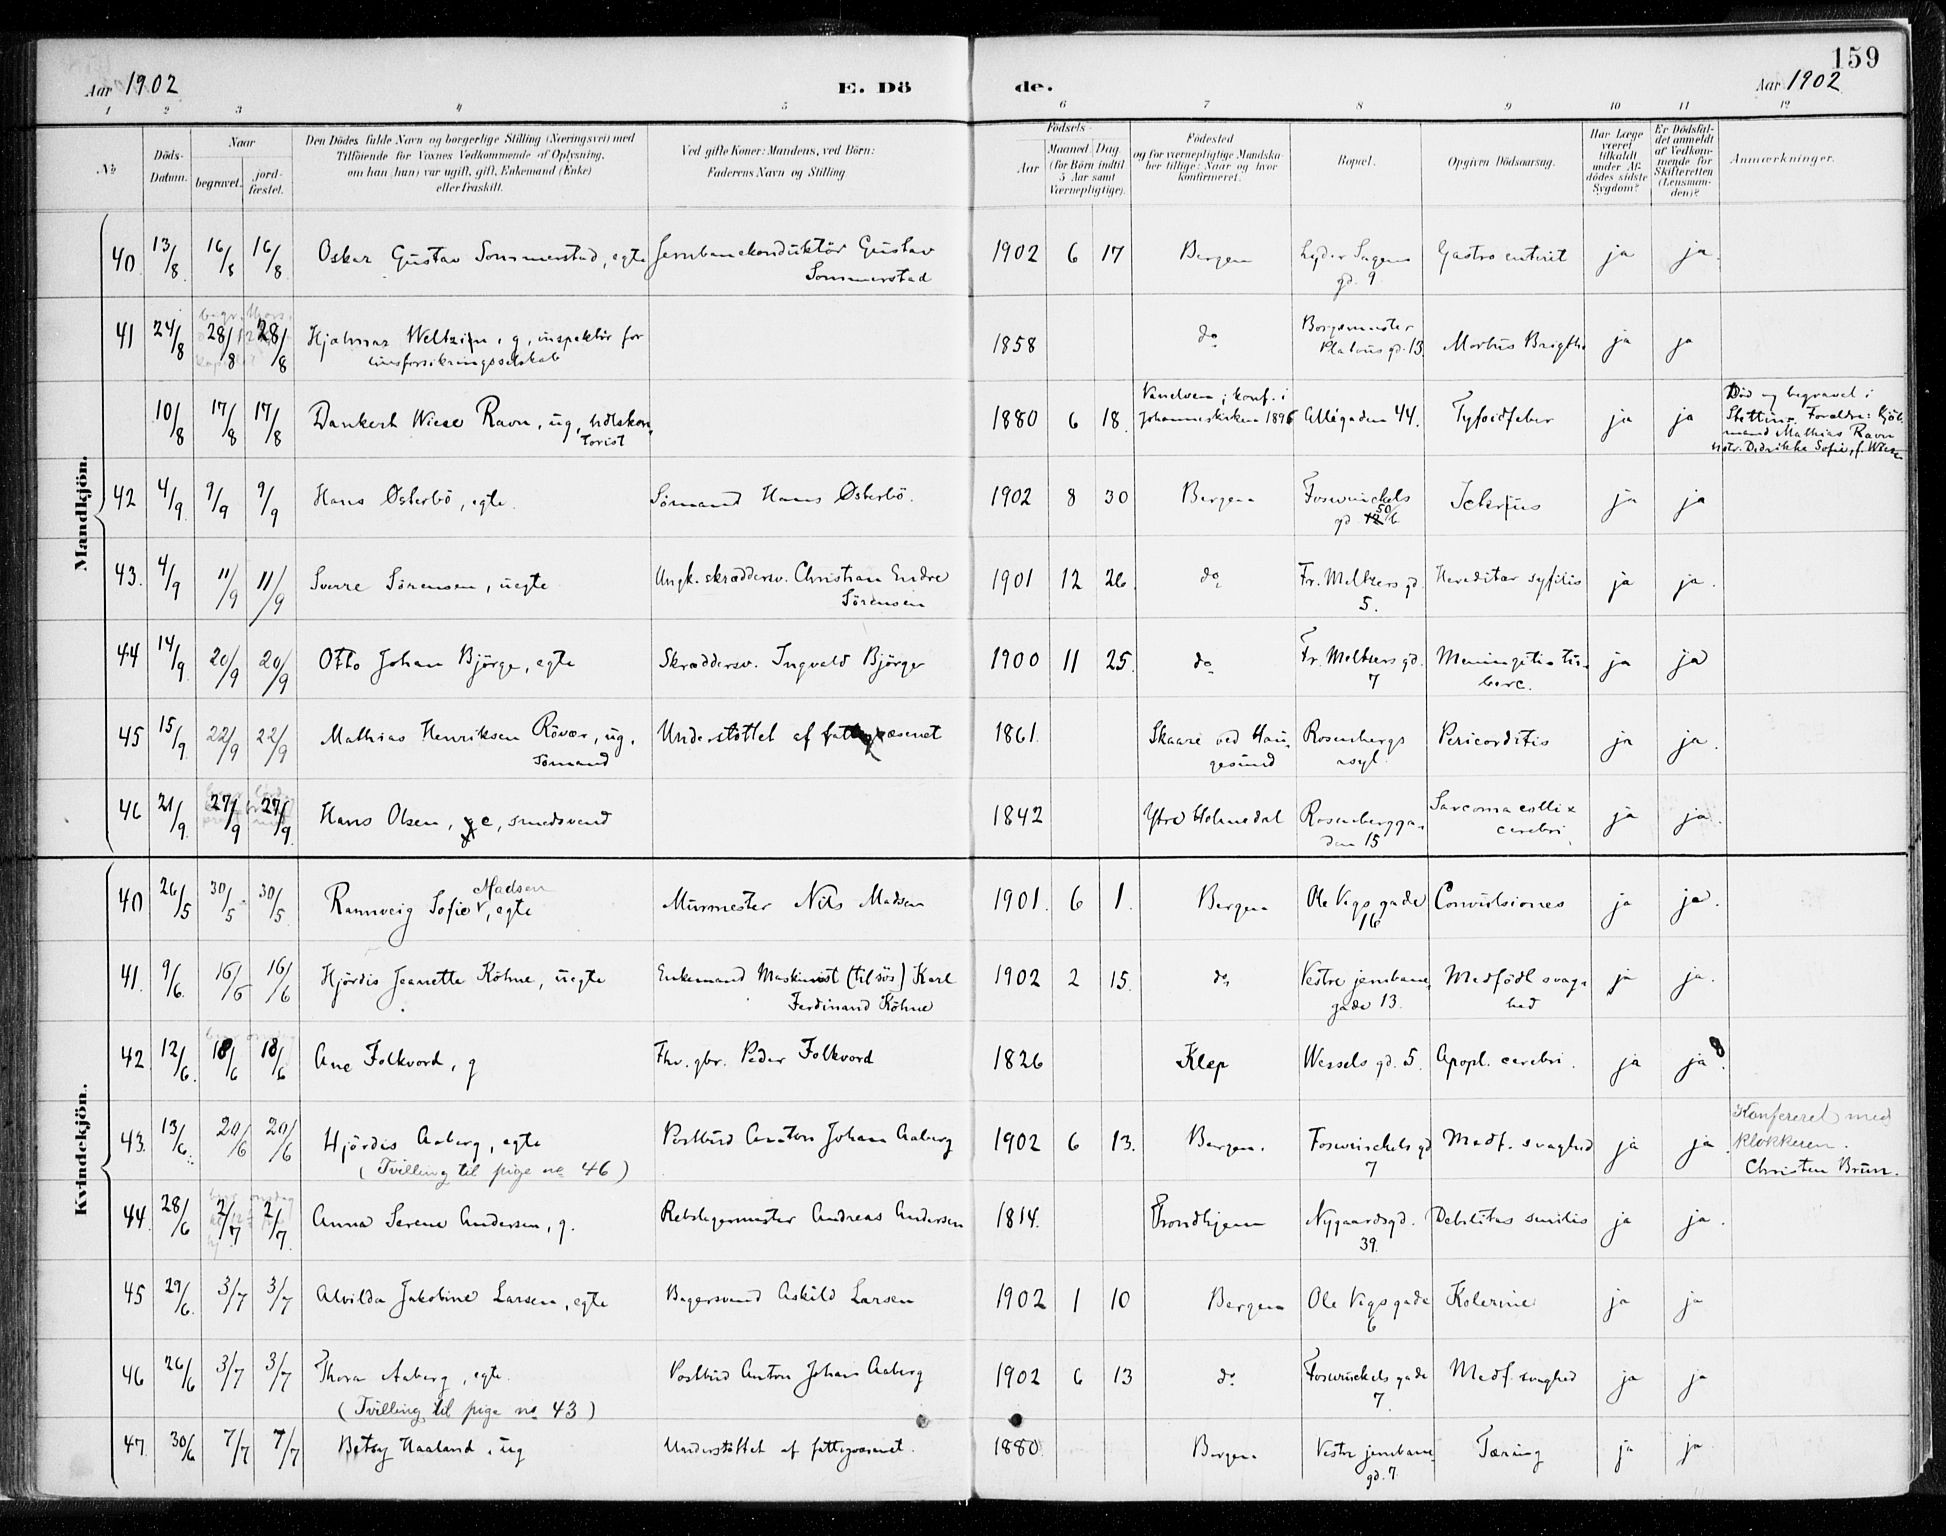 159
Aar 1902
E. Dö
de.
Aar 1902
1 2 3 4 5 6 7 8 9 10 11 12
№
Döds-Datum.
Naar
begravet.
jord-fæstet.
Den Dödes fulde Navn og borgerlige Stilling (Næringsvei) med
Tilföiende for Voxnes Vedkommende af Oplysning,
om han (hun) var ugift, gift, Enkemand (Enke)
eller fraskilt.
Ved gifte Koner: Mandens, ved Börn:
Faderens Navn og Stilling
Födsels-
Aar
Maaned Dag
(for Börn indtil
5 Aar samt
Værnepligtige).
Födested
og for værnepligtige Mandska-
ber tillige: Naar og hvor
konfirmeret.
Bopæl.
Opgiven Dödsaarsag.
Har Læge
været
tilkaldt
under Af-
dödes sidste
Sygdom?
Er Dödsfal-
det anmeldt
af Vedkom-
mende for
Skifteretten
(Lensman-
den)?
Anmærkninger.
Mandkjön.
40. 13/8. 16/8 16/8. Oskar Gustav Sommerstad, egte Jernbanekonduktör Gustav Sommerstad 1902 6 17 Bergen Lyder Sagens gd. 9 Gastro enterit ja ja.
41 24/8 28/8 28/8 Hjalmar Weltzien, g, inspektör for livsforsikringsselskab 1858 do Borgermester Platous gd. 13. Morbus Brigthi ja ja
10/8 17/8 17/8 Dankert Wiese Ravn, ug, hdlskontorist 1880 6 18. konf. i Johanneskirken 1896 Allégaden 44. Tyfoidfeber ja ja Död og begravet i Stettin. Forældre: Kjöbmand Mathias Ravn Didrikke Sofie, f. Wiese
42 4/9. 9/9 9/9 Hans Østerbö, egte. Sömand Hans Østerbö. 1902 8 30 Bergen Foswinckels gd. 50 b Icterus ja ja
43. 4/9 11/9 11/9 Sverre Sörensen, uegte Ungk. skræddersv. Christian Endre Sörensen 1901 12 26. do Fr. Meltzers gd. 5. Hereditær syfilis ja ja.
44 14/9. 20/9 20/9 Otto Johan Björge, egte Skræddersv. Ingvald Björge 1900 11 25. do Fr. Meltzers gd. 7 Meningitis tuberc. ja ja
45 15/9. 22/9 22/9 Mathias Henriksen Rövær, ug. sömand Understöttet af fattigvæsenet 1861. Skaare ved Haugesund Rosenbergs asyl. Pericarditis ja ja.
46 21/9. 27/9 27/9. Hans Olsen, e, smedsvend 1842 Ytre Holmedal Rosenberggaden 15 Sarcoma colli & cerebri ja ja.
Kvindekjön.
40 26/5 30/5 30/5. Rannveig Sofie Madsen, egte Murmester Nils Madsen 1901. 6 1. Bergen Ole Vigs gade 16 Convulsiones ja ja.
41. 9/6. 16/6 16/6 Hjördis Jeanette Köhne, uegte Enkemand Maskinist (tilsös) Karl Ferdinand Köhne 1902 2 15. do Vestre jernbanegade 13. Medfödt svaghed ja ja.
42. 12/6. 18/6 18/6 Ane Folkvord, g Fhv. gbr. Peder Folkvord 1826 Klep Wessels gd. 5. Apopl. cerebri. ja ja.
43. 13/6. 20/6 20/6 Hjördis Aaberg, egte (Tvilling til pige no 46) Postbud Anton Johan Aaberg 1902 6 13. Bergen. Foswinckels gd 7 Medf. svaghed ja ja. Konfereret med klokkeren. Christen Brun.
44. 28/6 2/7 2/7. Anna Serene Andersen, g. Rebslagermester Andreas Andersen 1814. Trondhjem Nygaardsgd. 39. Debilitas senilis ja ja.
45 29/6. 3/7 3/7 Alvilda Jakobine Larsen, egte Bagersvend Askild Larsen 1902 1 10 Bergen Ole Vigs gade 6 Kolerine ja ja
46 26/6 3/7 3/7 Thora Aaberg, egte. (Tvilling til pige no 43) Postbud Anton Johan Aaberg 1902 6 13 do Foswinckels gade 7. Medf. svaghed ja ja
47. 30/6 7/7 7/7 Betsy Haaland, ug Understöttet af fattigvæsenet. 1880. Bergen Vestre jernbanegd. 7. Tæring ja ja